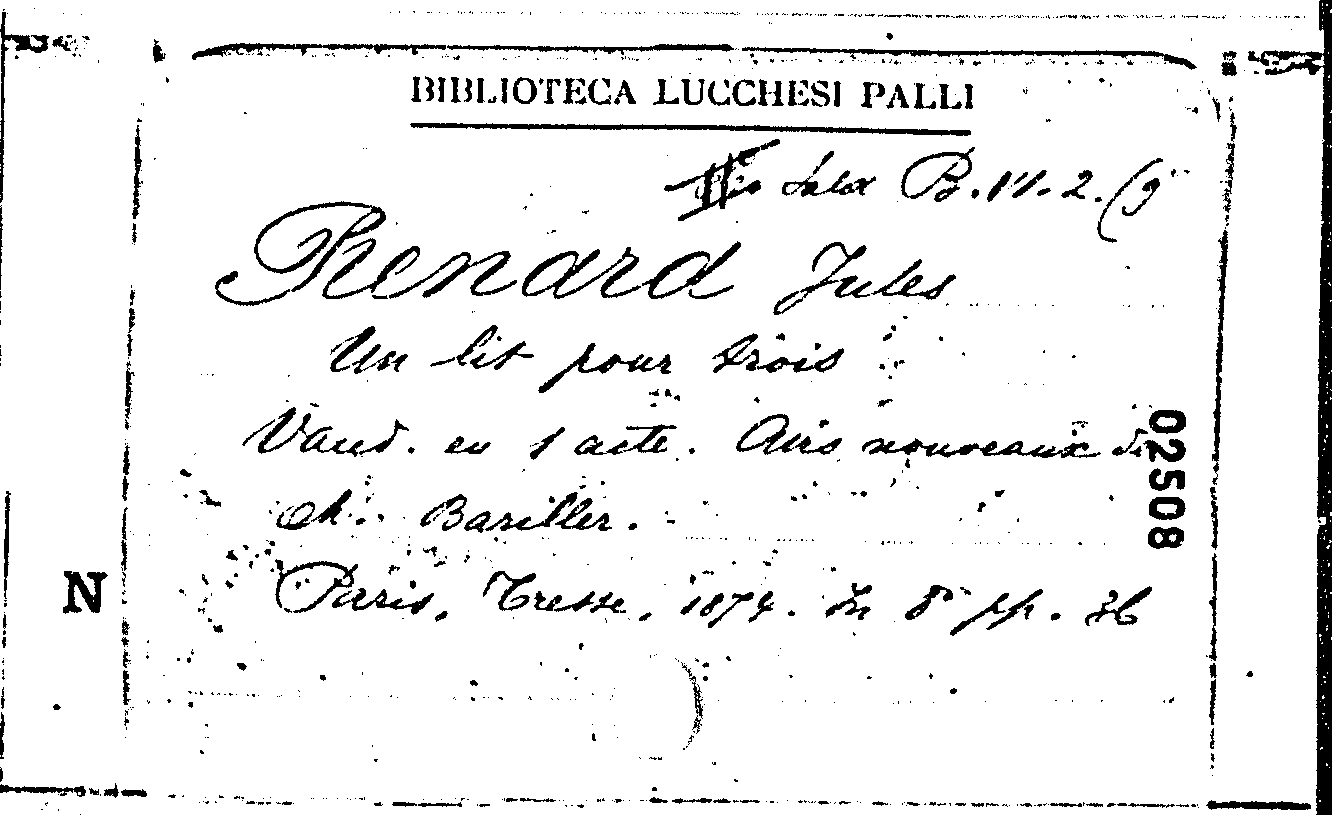 BIBLIOTECA LUCCHESI PALLI
Sala B. 14. 2. (9
Renard Jules
Un lit pour trois
Vaud. en 1 acte. Airs nouveaux de
Ch. Bariller.
02508
N
Paris, Tresse, 1874. In 8° pp. 36